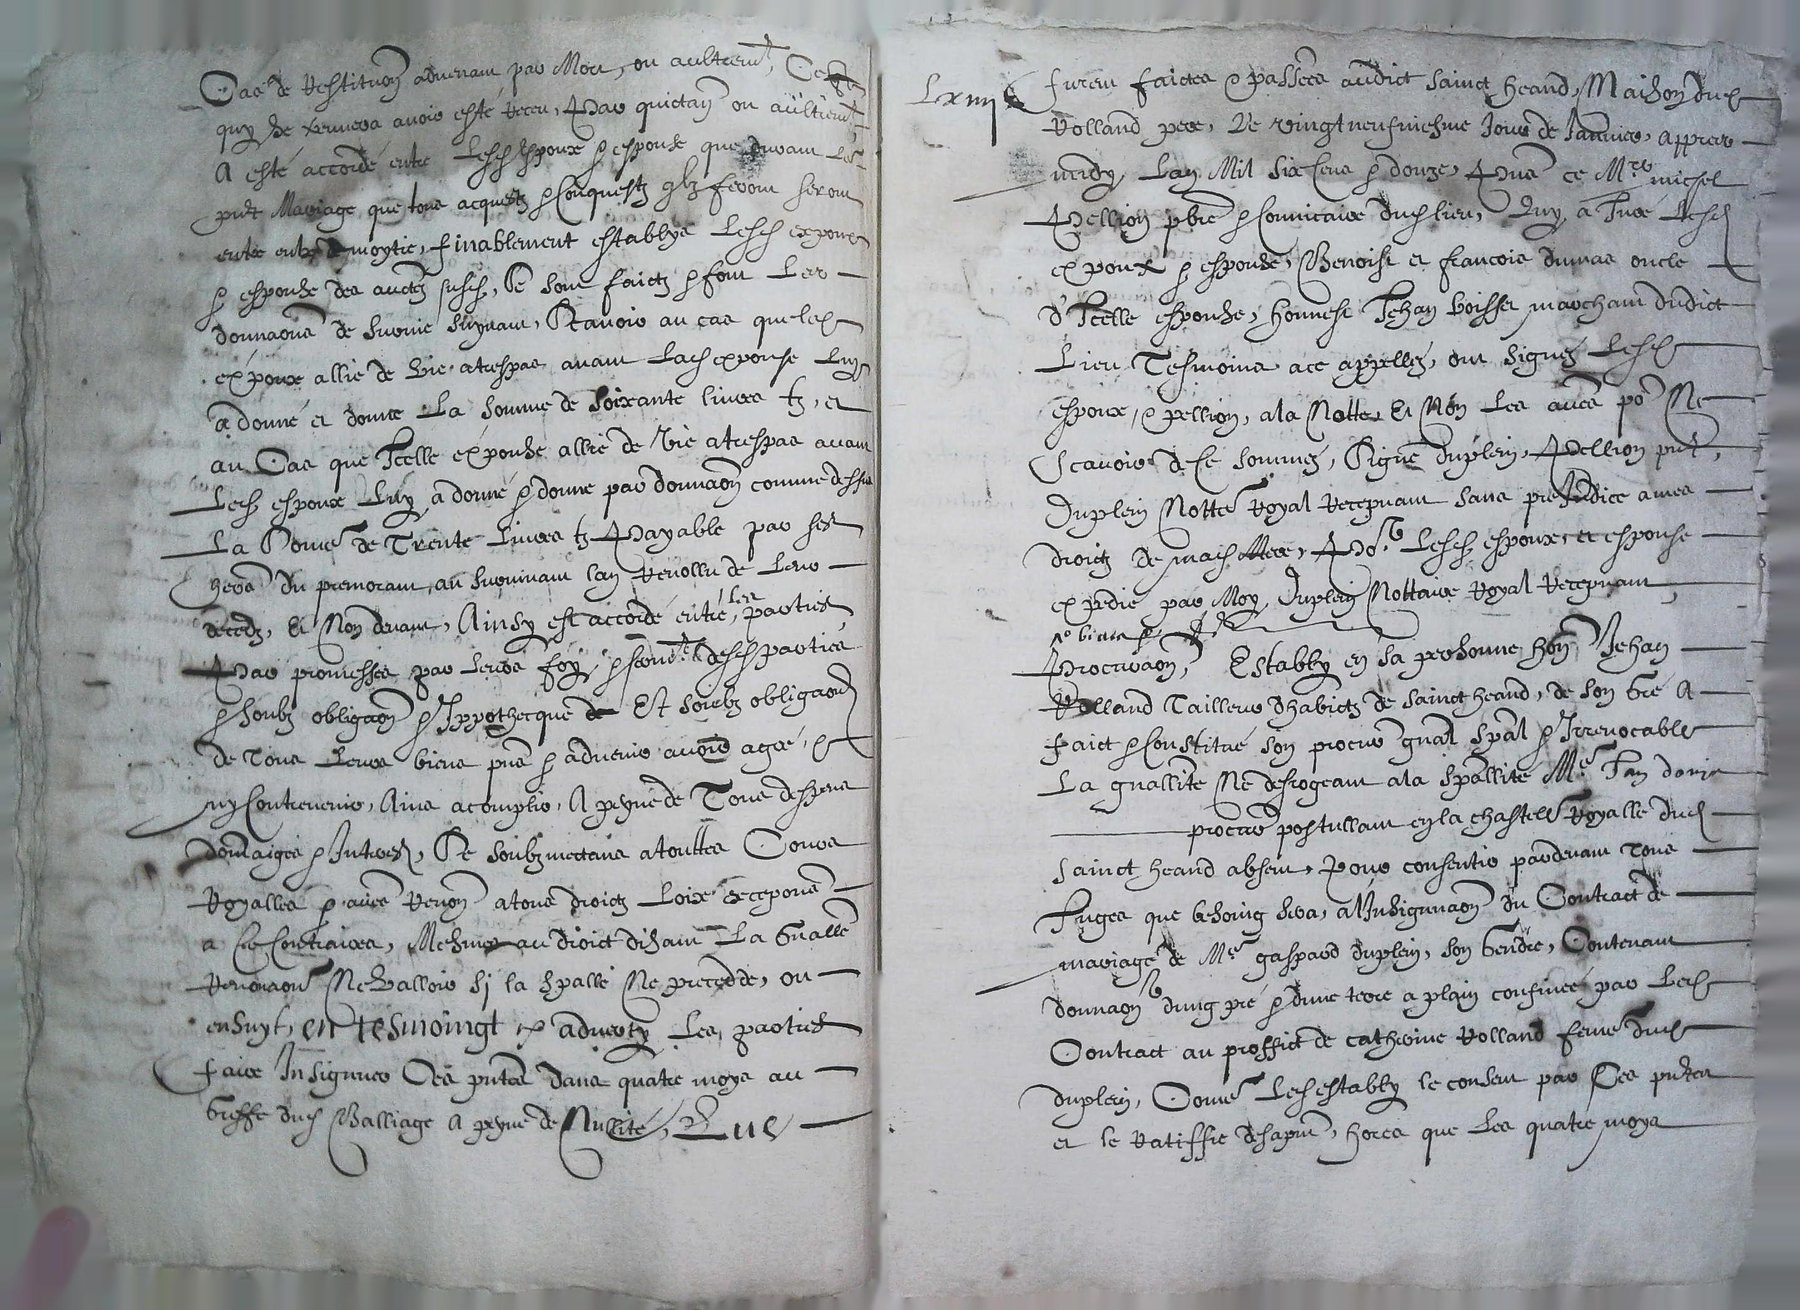 Cas de Restituon advenant par Mort, ou aultrem.t, Ce
quy se trouvera avoir esté Receu, Par quictan ou aultrem.t
A esté accordé entre Lesd espoux & espouse que durant Led
pnt Mariage que tous acquestz & Conquestz qlz feront seront
entre eulx moytie, finablement establys Lesd expoux
& espouse des auctz susd, Se sont faictz & font Les
donnaons de survie suyvant, Scavoir au cas que led
expoux allie de vie a trespas avant Lad expouse Luy
a donné et donne La somme de soixante livres tz, et
au Cas que Icelle expouse allie de Vie a trespas avant
Led espoux Luy a donné & donne par donnaon comme dessus
La Some de Trente Livres tz Payable par ses
hers du premorant, au survivant lan Revollu de Leur
decedz, Et Non devant, Ainsy est accordé entre les parties
Par promesses par Leurs foy & serm.t desd parties
& soubz obligaon & Ippothecque de Et soubz obligaon
de Tous Leurs biens pns & advenir avoir agré, &
ny Contrevenir, Ains acomplir, A peyne de Tous despens
domaiges & Intrestz, Se soubzmectans a touttes Cours
Royalles & aues Renon a tous droictz Loix exceptons
a Ce Contraires, Mesmes au droict disant La Gnalle
Renonaon Ne Valloir sj la spalle Ne precedde, ou
ensuyt, en tesmoingt & adverty Les parties
faire Insignuer Ces pntes dans quatre moys au
Greffe dud Balliage A peyne de Nullité, Que
Lxiiij
furent faictes & passees audict sainct heand, Maison dud
Rolland pere, Le vingtneufviesme Jour de Janvier, appres
midy, Lan Mil six Cens & douze, Pns ce M.re michel
Pellion pbre & Convicaire dud lieu, Quy a Iuré Lesd
expoux & espouse, Benoist et francois dumas oncle
d'Icelle espouse, honnest Jehan boisse marchant dudict
Lieu Tesmoins ace appellez, ont signez Lesd
espoux, & pellion, a la Notte, Et Non Les aues po.r Ne
Scavoir de Ce sommez, Signé duplein, Pellion pnt,
Duplein Nottre Royal Recepvant sans preJudice a mes
droictz de mad Mere, Po.r Lesd espoux, et espouse
expedie par Moy Duplein Nottaire Royal Recepvant
Procuraon, Estably en sa personne hon Jehan
Rolland Tailleur dhabictz de sainct heand, de son Gré A
faict & Constitué son procur gnal spal & Irrevocable
La gnallite Ne desrogeant a la spallite M.e Jan
procur postullant en la chastell Royalle dud
sainct heand absent, Pour consentir pardevant Tous
Juges que besoing sera, a lInsignuaon du Contract de
mariage de M.e gaspard duplein, son Gendre, Contenant
donnaon dung pré & dune terre a plain confinee par Led
Contract au proffict de catherine Rolland feme dud
duplein, Come Led estably le consent par Ces pntes
et le Ratiffie desapnt, hores que Les quatre moys